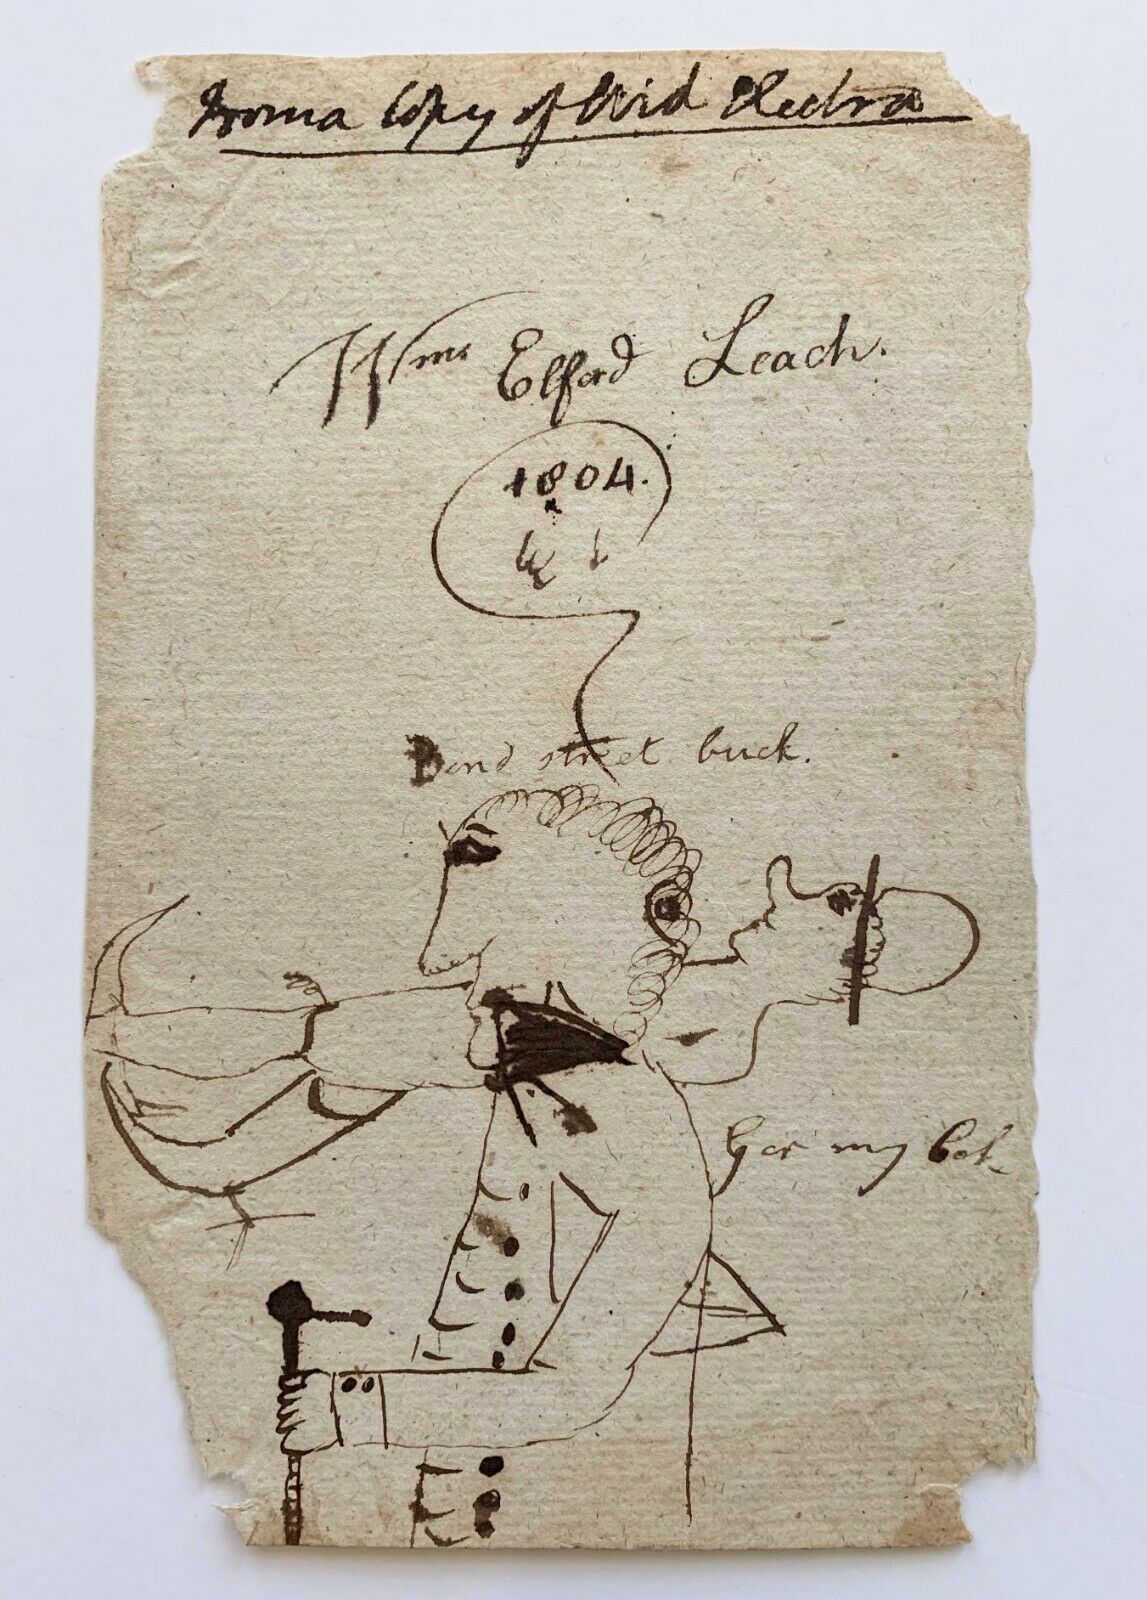 From a Copy of Ovid Electra
Wm Elford Leach.
1804.
Bond street buck.
my